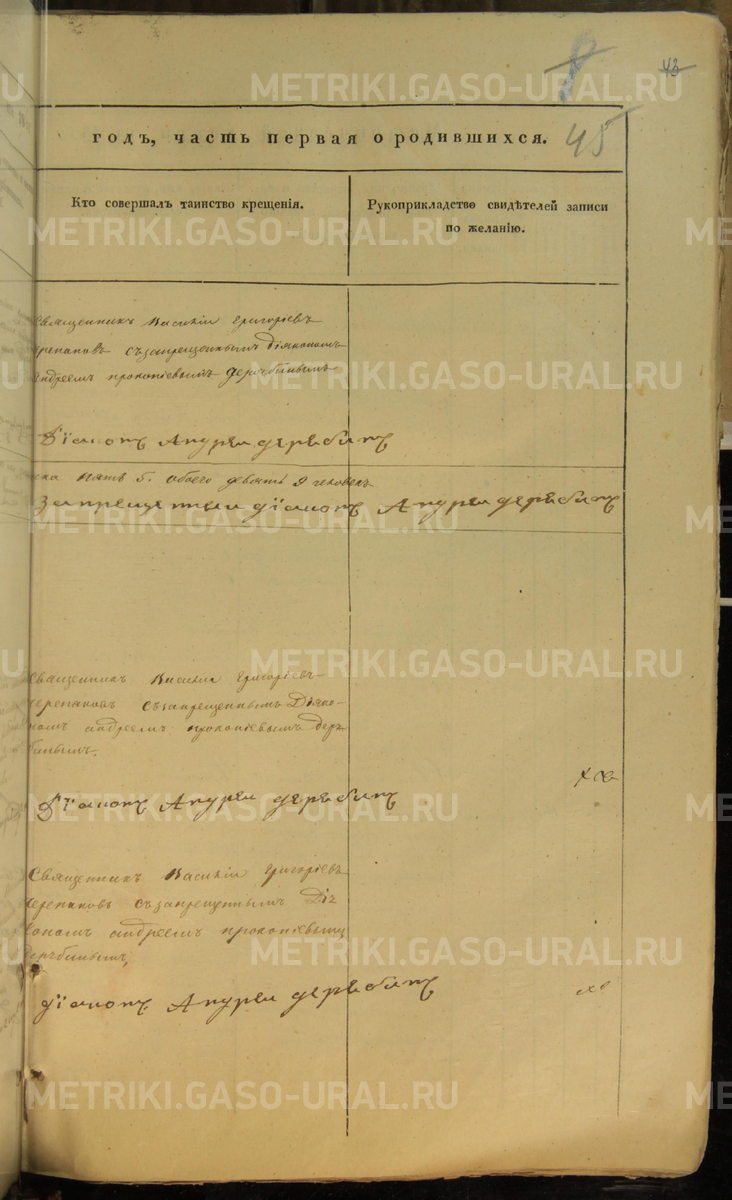 43
45
годъ, часть первая о родившихся.
Кто совершалъ таинство крещенія.
Рукоприкладство свидѣтелей записи
по желанію.
Священникъ Василій Григоріевъ
черепановъ съ запрещеннымъ діякономъ
андреемъ прокопіевымъ дерябинымъ
Діаконъ Андрей дерябинъ
пять 5. обоего девять 9 человекъ
Запрещенный діаконъ Андрей дерябинъ
Священникъ Василій Григоріевъ
черепановъ съ запрещеннымъ Діяко-
номъ андреемъ прокопіевымъ деря-
бинымъ.
Діаконъ Андрей дерябинъ
Священникъ Василій Григоріевъ
черепановъ съ запрещеннымъ Дія
кономъ андреемъ прокопіевымъ
дерябинымъ,
діаконъ Андрей дерябинъ
METRIKI.GASO-URAL.RU